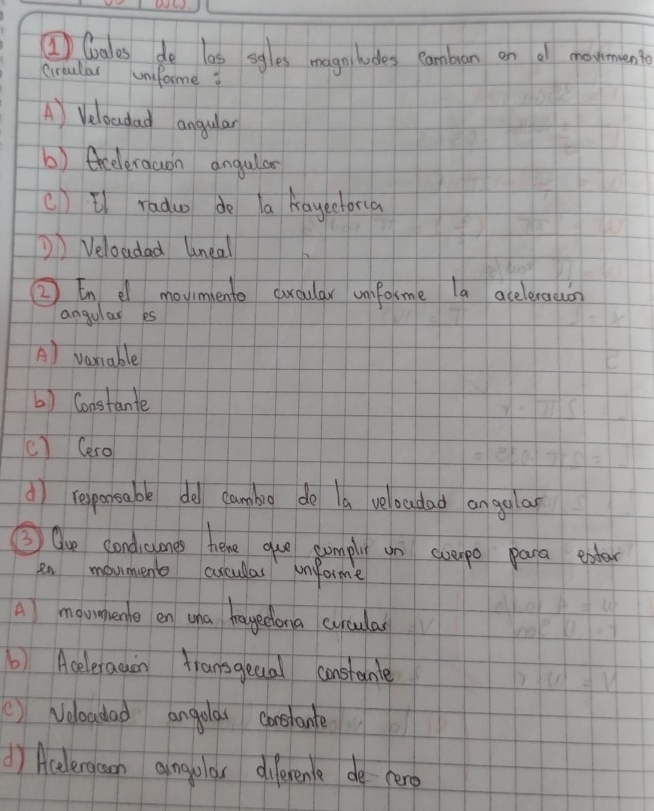 ① Cuales de las sgles magnitudes cambian en el movimiento
circular uniforme :
A) Velocidad angular
b) Aceleracion angular
c) El radio de la trayectoria
D) Velocidad lineal
② En el movimiento circular uniforme la aceleracion
angular es
A) variable
b) Constante
c) Cero
d) responsable del cambio de la velocidad angular
③ Que condiciones tiene que cumplir un cuerpo para estar
en movimiento circular uniforme
A) movimiento en una trayectoria circular
b) Aceleración transgecial constante
c) Velocidad angular constante
d) Aceleracion angular diferente de cero